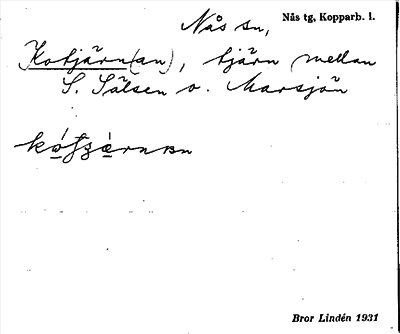 Nås sn, Nås tg, Kopparb. l.
Kotjärn(an), tjärn mellan
S. Sälsen o. Marsjön
Bror Lindén 1931